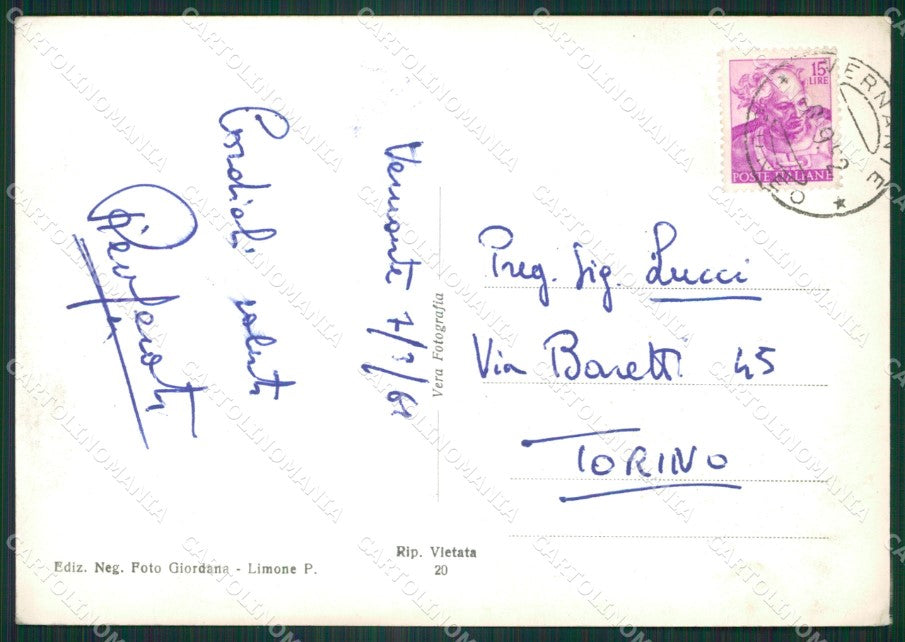 Vernante 7/9/62
Cordiali saluti
15 LIRE
POSTE ITALIANE
VERNANTE
CUNEO
Preg. Sig. Lucci
Via Baretti 45
TORINO
Vera Fotografia
Rip. Vietata
20
Ediz. Neg. Foto Giordana - Limone P.
CARTOLINOMANIA